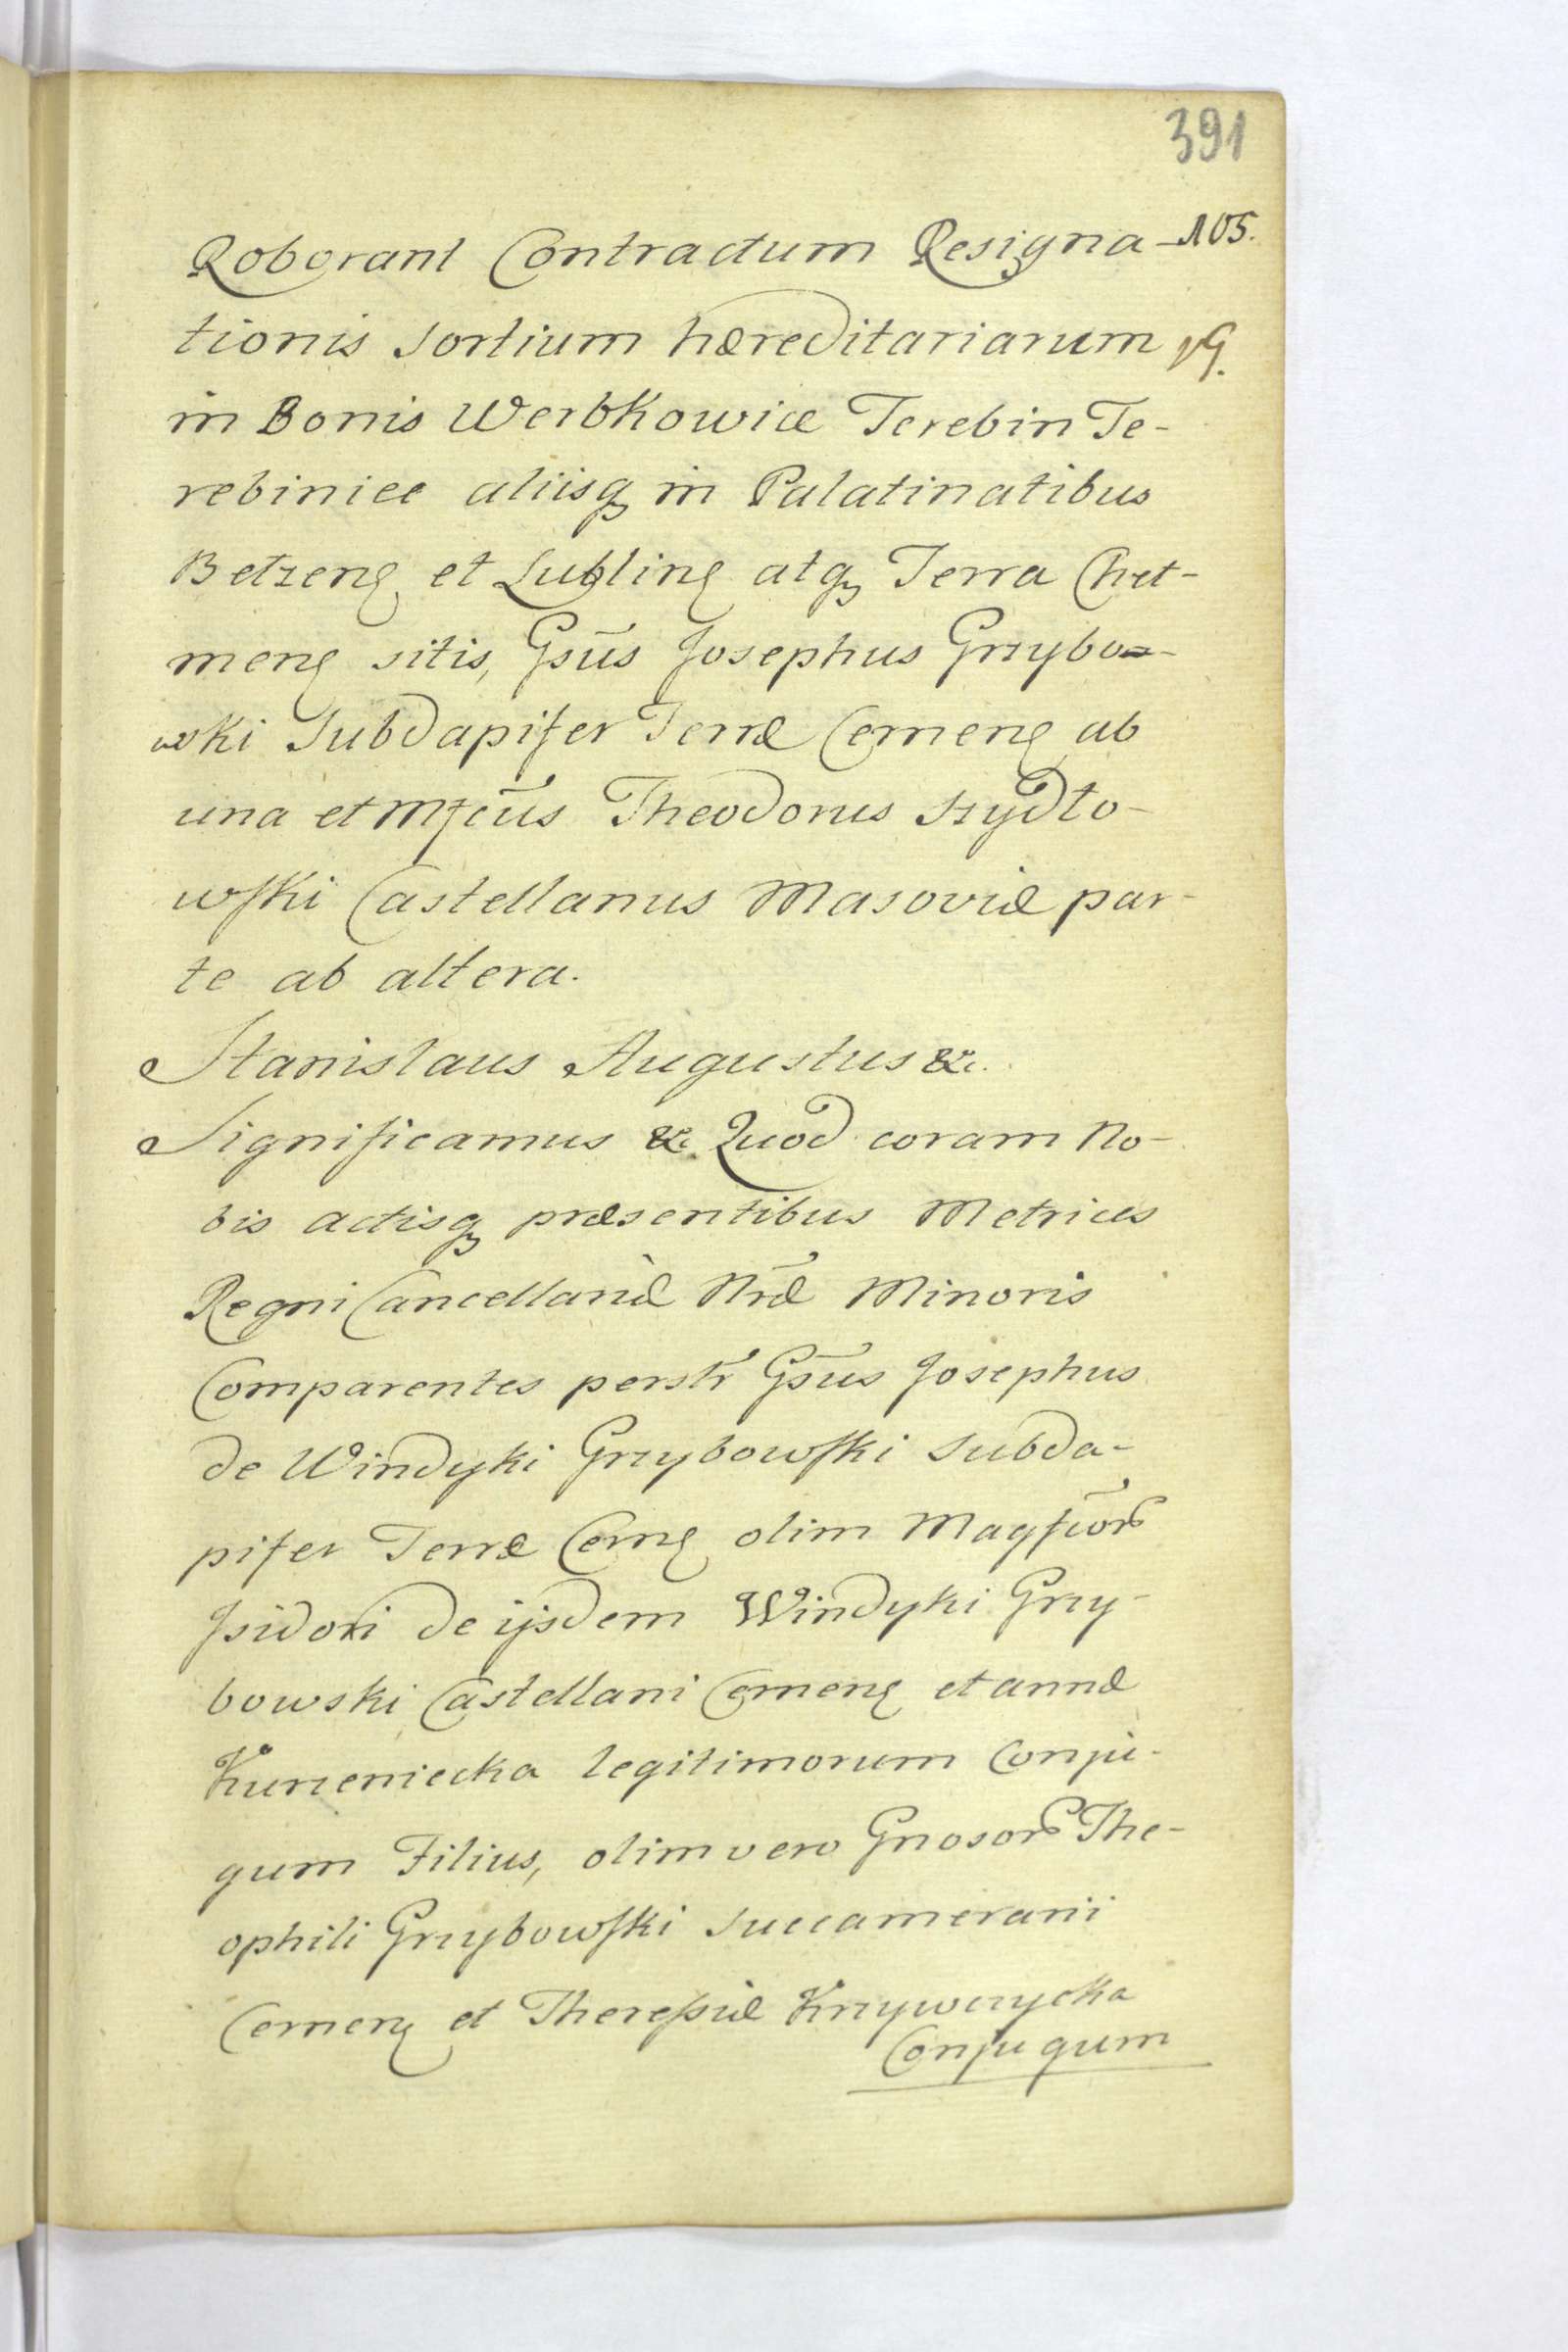 391
Roborant Contractum Resigna- 105.
tionis Sortium hæreditariarum
in Bonis Werbkowice Terebin Te-
rebiniec aliisq in Palatinatibus
Bełzenȩ et Lublinȩ atq Terra Cheł-
menȩ sitis, Gsūs Josephus Grzybo-
wki Subdapifer Terræ Cemenȩ ab
una et Mfcūs Theodorus Szydło-
wski Castellanus Masoviæ par-
te ab altera.
Stanislaus Augustus &c.
Significamus &c Quod coram No-
bis actisq præsentibus Metrices
Regni Cancellariæ Nræ Minoris
Comparentes perstr Gsūs Josephus
de Windyki Grzybowski Subda-
pifer Terræ Cemȩ olim Magfcor
Jsidori de ijsdem Windyki Grzy-
bowski Castellani Cemenȩ et annæ
Kurzeniecka legitimorum Conju-
gum Filius, olim vero Gnosor The-
ophili Grzybowski Succamerarii
Cemenȩ et Theressiæ Krzywczycka
Conjugum